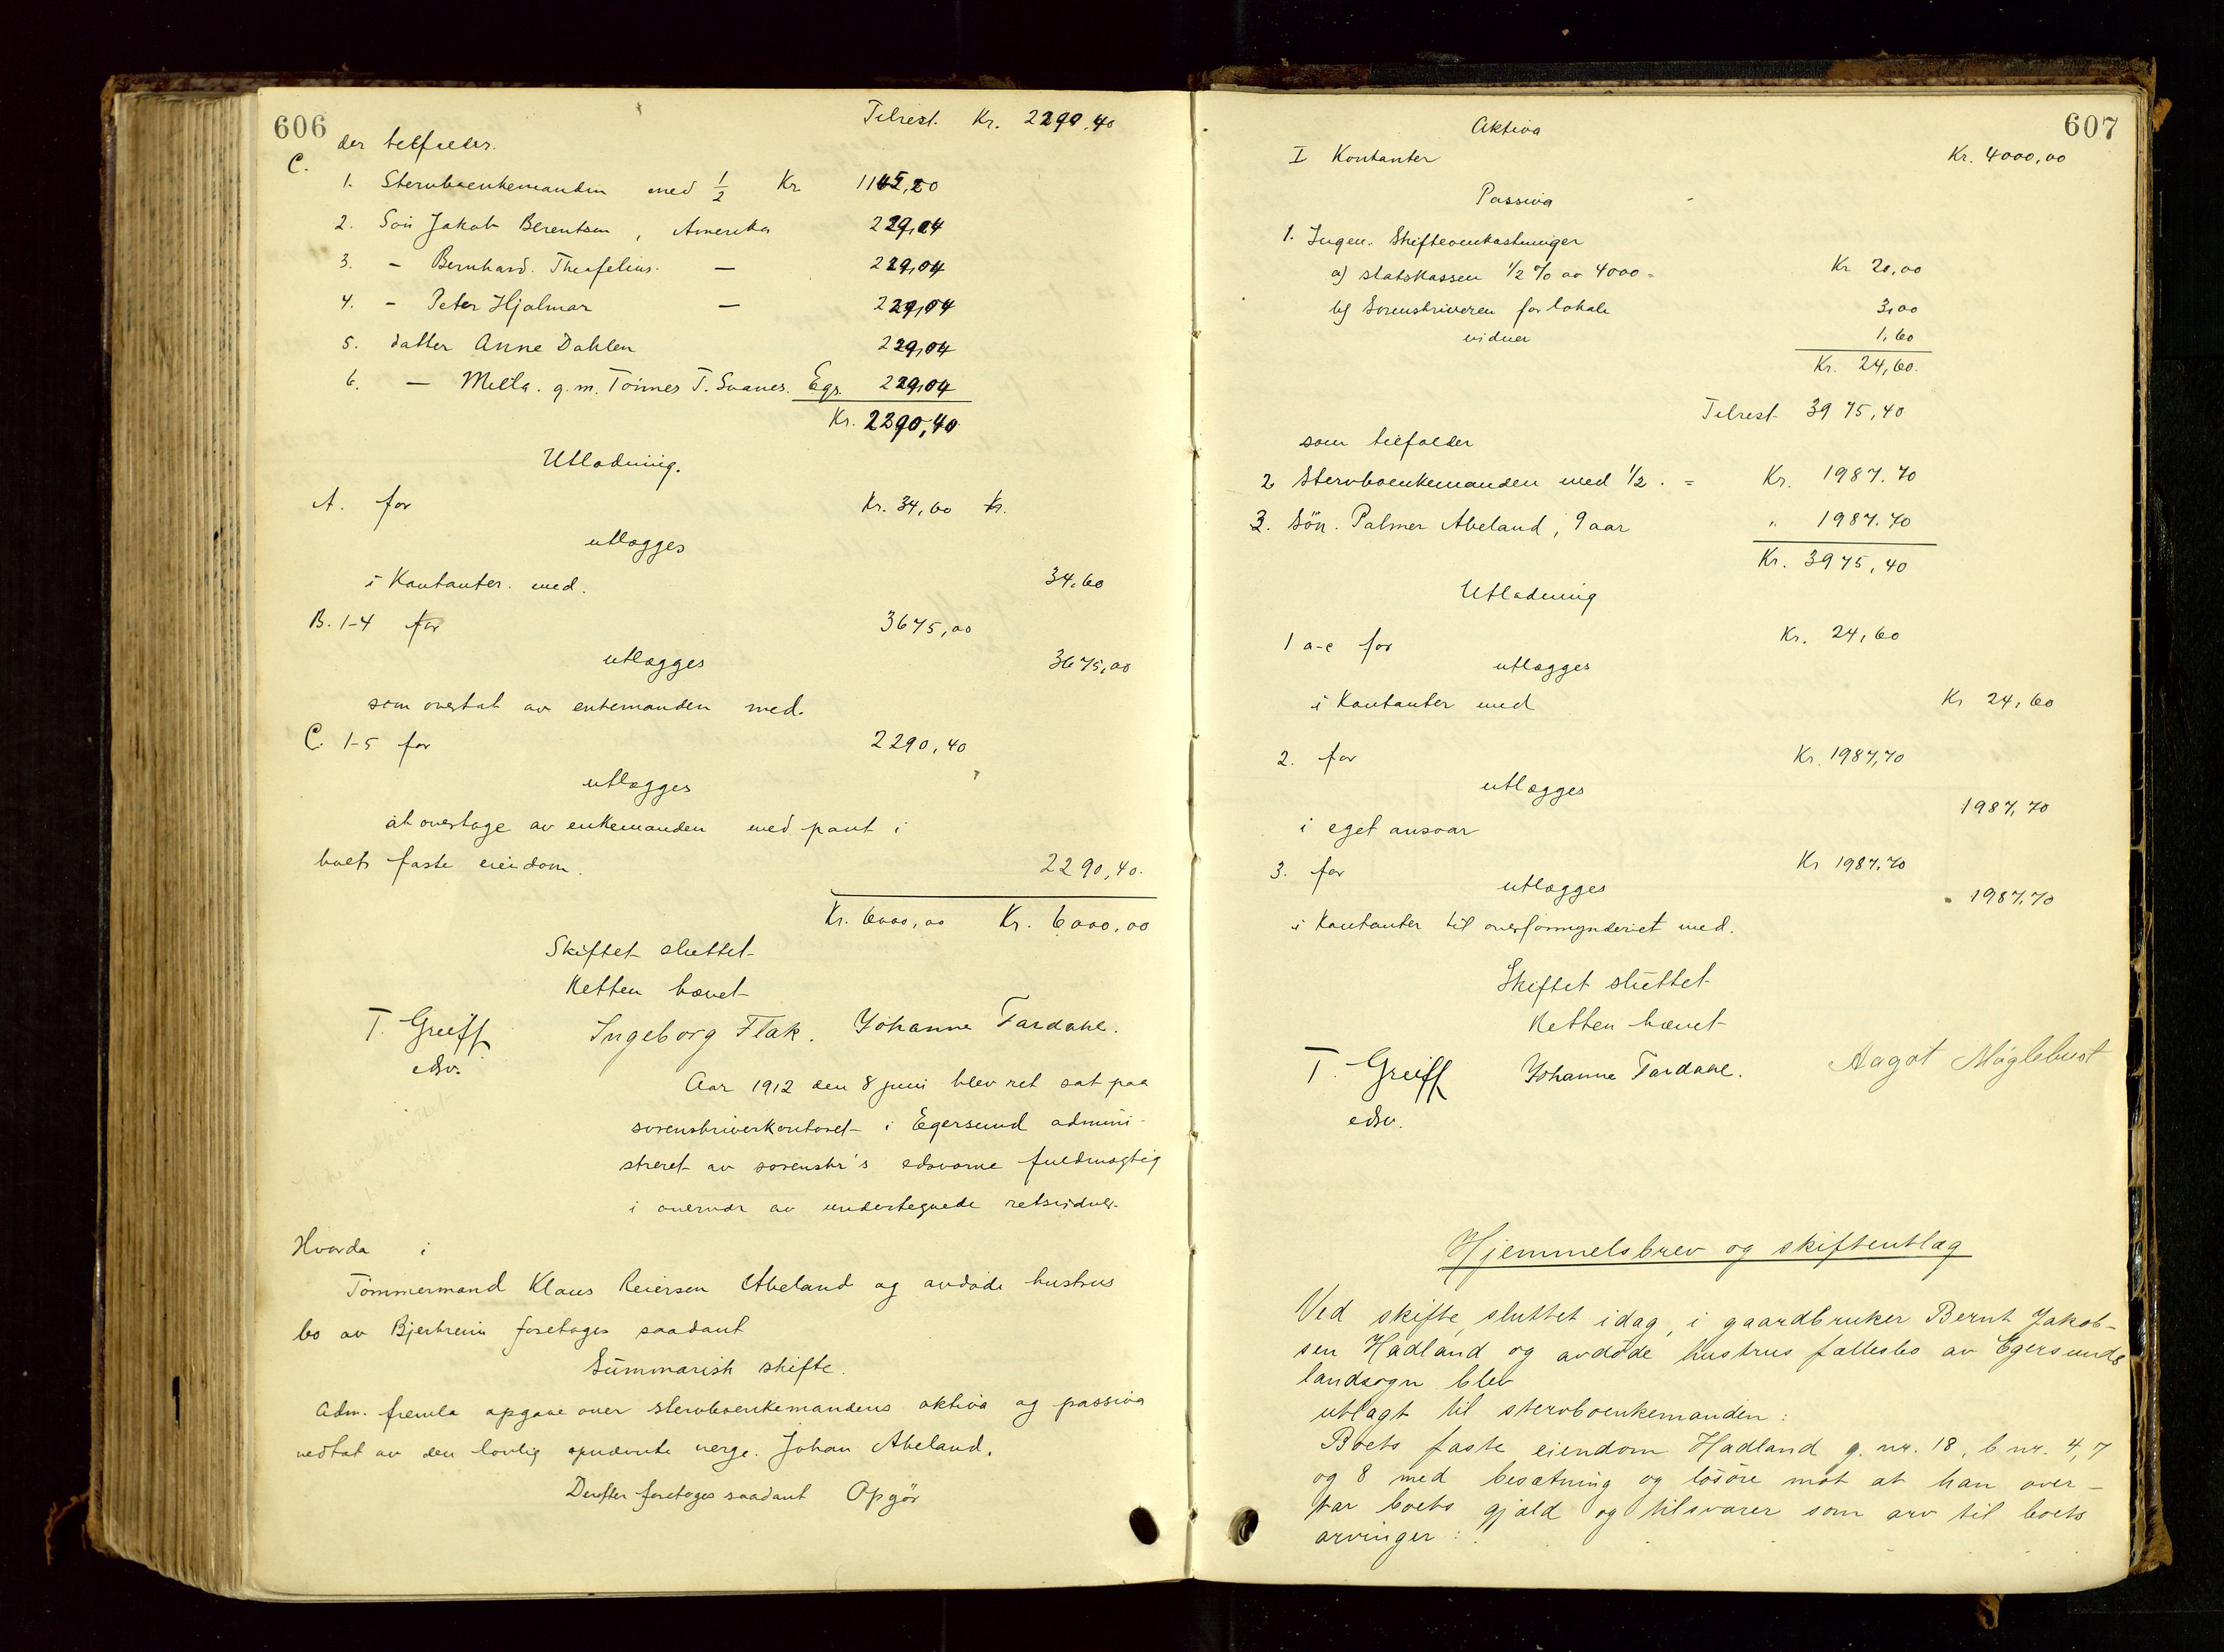 606
Tilrest. Kr. 2290,40
der tilfalder.
C.
1. Stervboenkemanden med 1/2 Kr 1145,20
2. Sön Jakob Berentsen, Amerika 229,04
3. – Bernhard Theofelius. — 229,04
4. – Peter Hjalmar — 229,04
5. datter Anne Dahlen 229,04
6. — Mella. g.m. Tönnes T. Svanes. Egs. 229,04
Kr. 2290,40
Utlodning.
A. for Kr. 34,60 Kr.
utlægges
i Kontanter. med. 34,60
B. 1-4 for 3675,00
utlægges 3675,00
som overtat av enkemanden med.
C. 1-5 for 2290,40
utlægges
at overtage av enkemanden med pant i
boets faste eiendom. 2290,40.
Kr. 6000,00 Kr. 6000,00
Skiftet sluttet
Retten hævet
T. Greiff Ingeborg Flak. Johanne Tardahl.
edsv.
Aar 1912 den 8 juni blev ret sat paa
sorenskriverkontoret i Egersund admini-
streret av sorenskr's edsvorne fuldmægtig
i overvær av undertegnede retsvidner.
Hvorda i
Tömmermand Klaus Reiersen Abeland og avdöde hustrus
bo av Bjerkreim foretoges saadant
Summarisk skifte.
Adm. fremla opgave over stervboenkemandens aktiva og passiva
vedtat av den lovlig opnævnte verge. Johan Abeland.
Derefter foretoges saadant Opgjör
607
Aktiva
I Kontanter Kr. 4000,00
Passiva
1. Ingen. Skifteomkostninger
a) statskassen 1/2 % av 4000 = Kr 20,00
b) Sorenskriveren for lokale 3,00
vidner 1,60
Kr. 24,60.
Tilrest 3975,40
som tilfalder
2 Stervboenkemanden med 1/2 . = Kr. 1987.70
3. Sön. Palmer Abeland, 9 aar " 1987.70
Kr. 3975,40
Utlodning
1 a-c for Kr. 24,60
utlægges
i Kontanter med Kr 24,60
2. for Kr. 1987,70
utlægges 1987,70
i eget ansvar
3. for Kr 1987,70
utlægges 1987,70
i Kontanter til overformynderiet med.
Skiftet sluttet
Retten hævet
T. Greiff Johanne Tardahl. Aagot Möglebust
edsv.
Hjemmelsbrev og skifteutlæg
Ved skifte, sluttet idag, i gaardbruker Bernt Jakob-
sen Hadland og avdöde hustrus fællesbo av Egersunds
landsogn blev
utlagt til stervboenkemanden:
Boets faste eiendom Hadland g. nr. 18, b nr. 4, 7
og 8 med besætning og lösöre mot at han over-
tar boets gjæld og tilsvarer som arv til boets
arvinger: